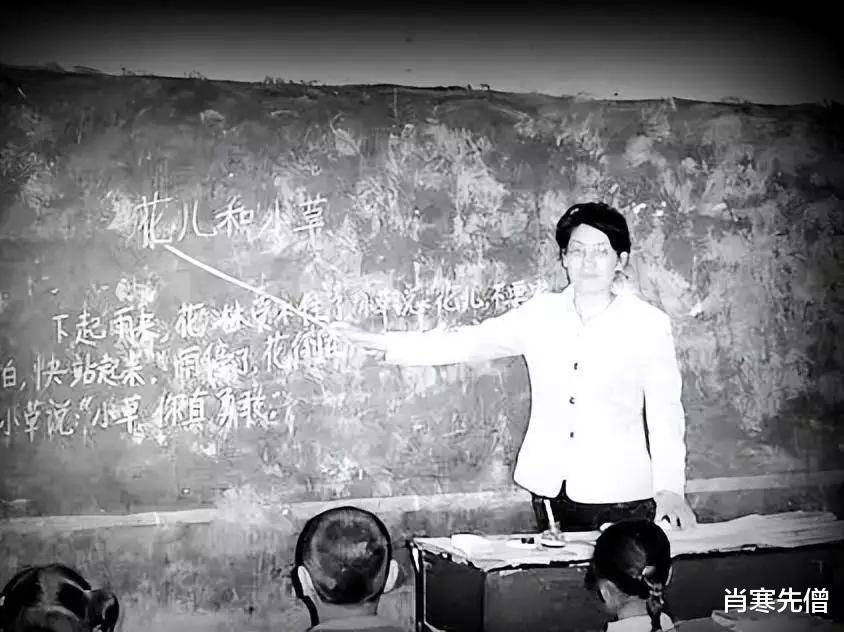 花儿和小草
下起雨来,花 小草说:花儿,不要
怕,快站起来。雨停了,花
小草说:“小草 你真勇敢。”
肖寒先僧